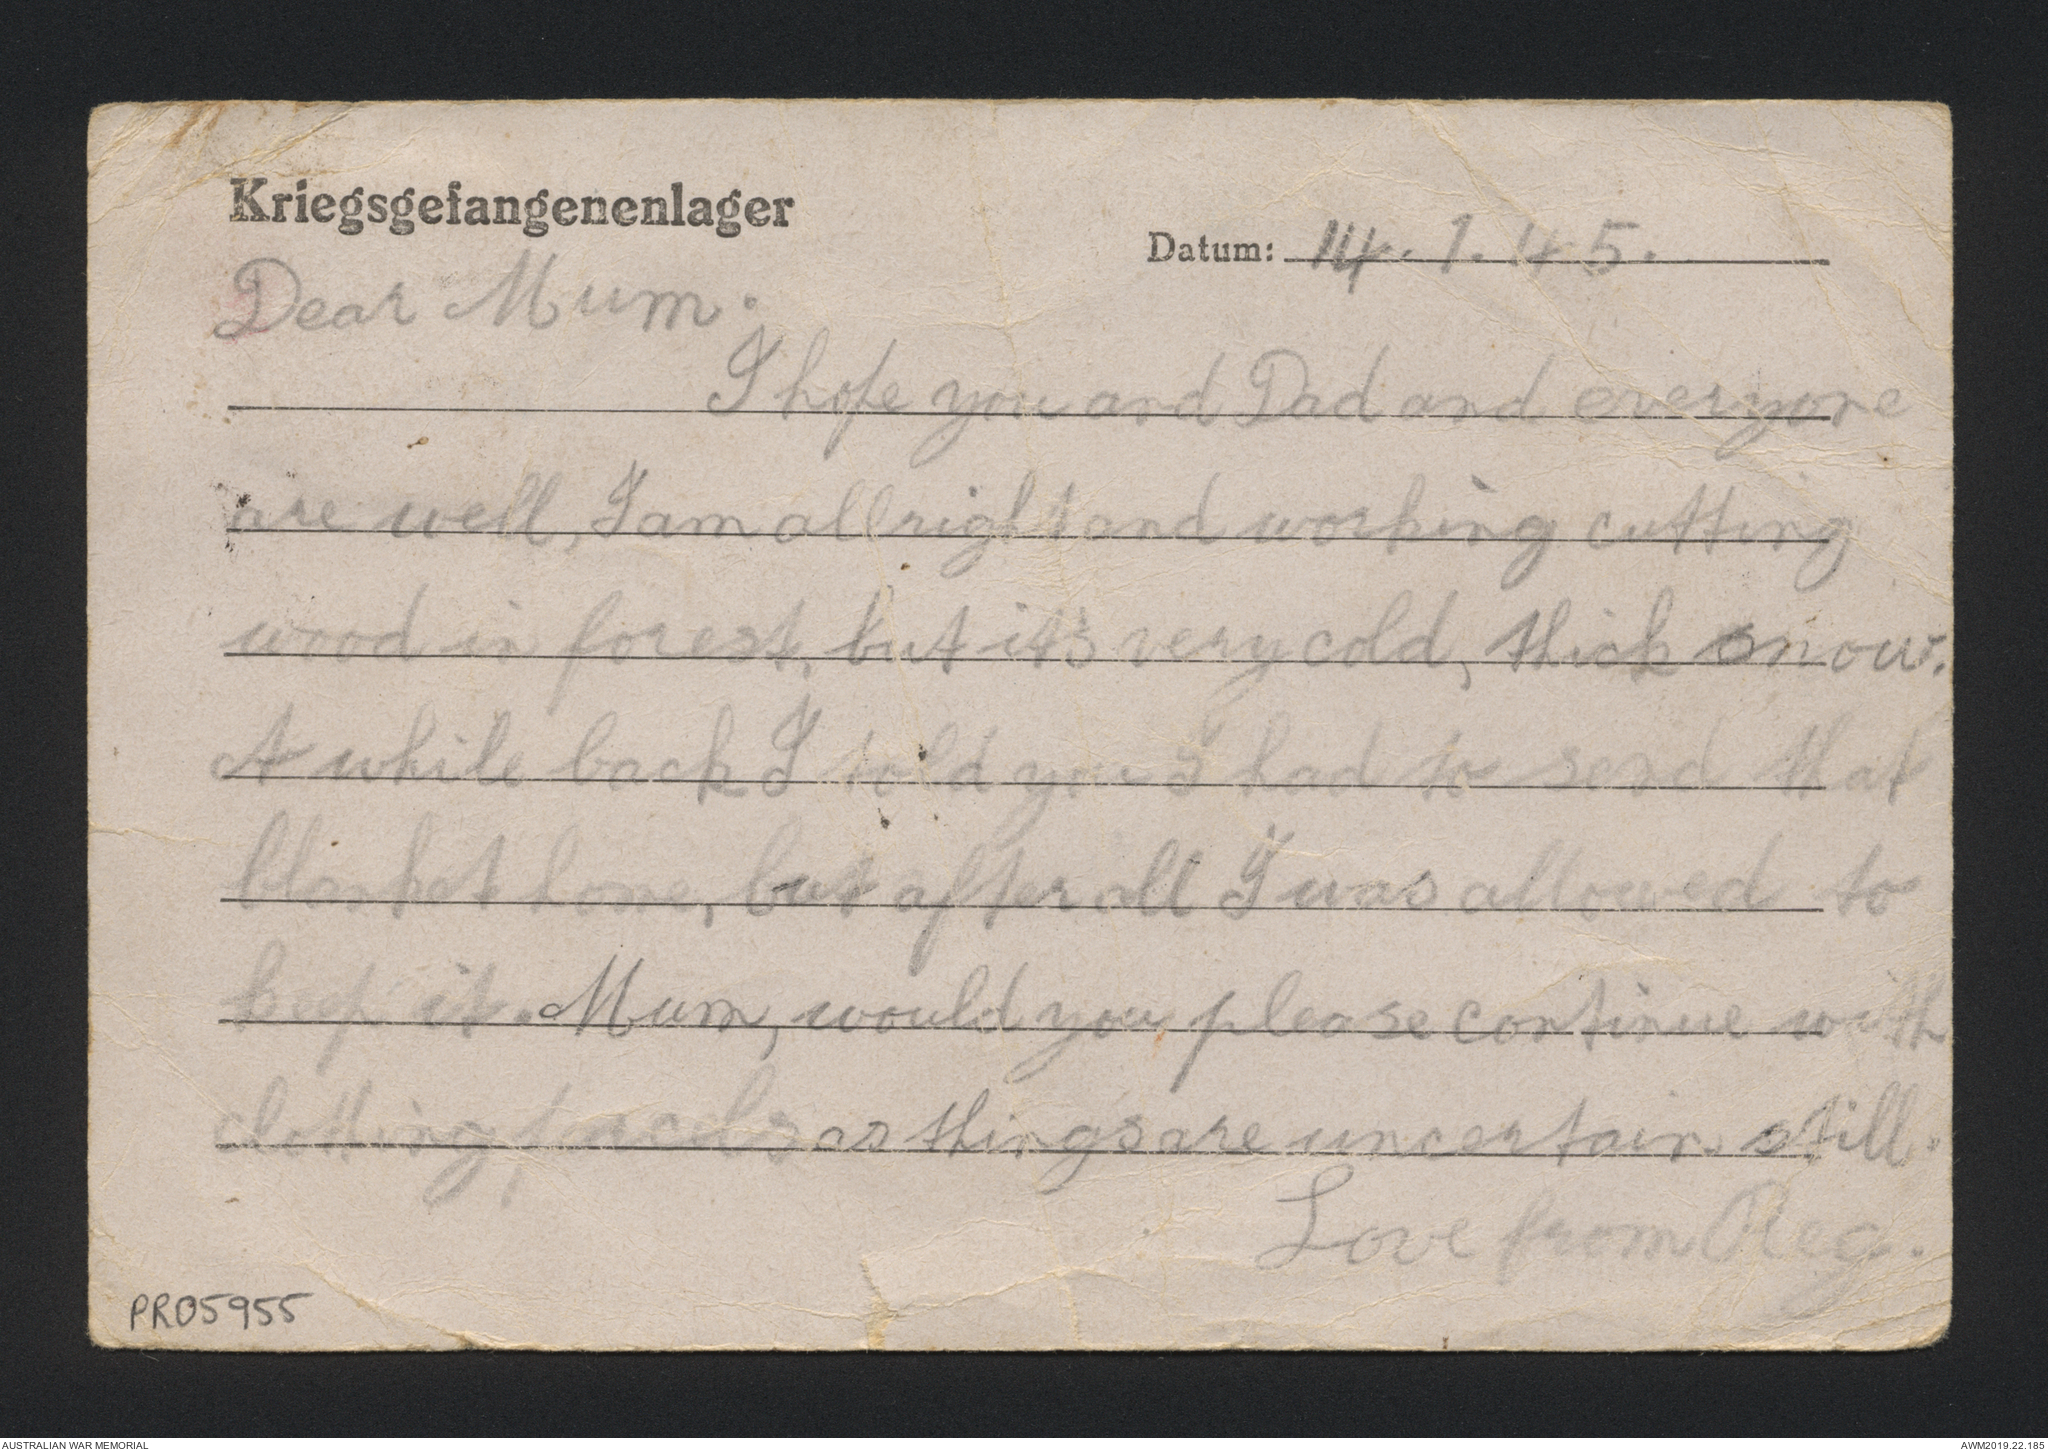 Kriegsgefangenenlager
Datum: 14.1.45.
Dear Mum.
I hope you and Dad and everyone
are well, I am allright and working cutting
wood in forest, but it's very cold, thick snow.
A while back I told you I had to send that
blanket home, but after all I was allowed to
keep it. Mum, would you please continue with
clothing parcels as things are uncertain still.
Love from Reg.
PR05955
AUSTRALIAN WAR MEMORIAL
AWM2019.22.185